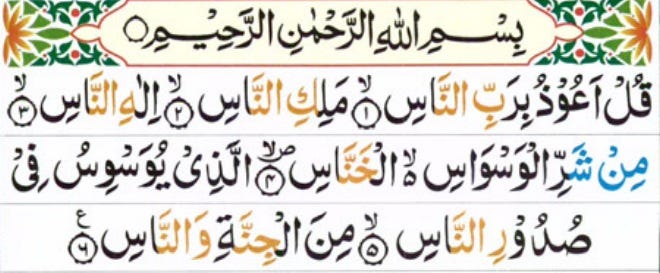 بِسْمِ اللهِ الرَّحْمٰنِ الرَّحِيْمِ
قُلْ اَعُوْذُ بِرَبِّ النَّاسِ ۙ﴿۱﴾ مَلِكِ النَّاسِ ۙ﴿۲﴾ اِلٰهِ النَّاسِ ۙ﴿۳﴾
مِنْ شَرِّ الْوَسْوَاسِ ۙ۬ الْخَنَّاسِ ۪ۙ﴿۴﴾ الَّذِیْ یُوَسْوِسُ فِیْ
صُدُوْرِ النَّاسِ ۙ﴿۵﴾ مِنَ الْجِنَّةِ وَالنَّاسِ ﴿۶﴾ ع